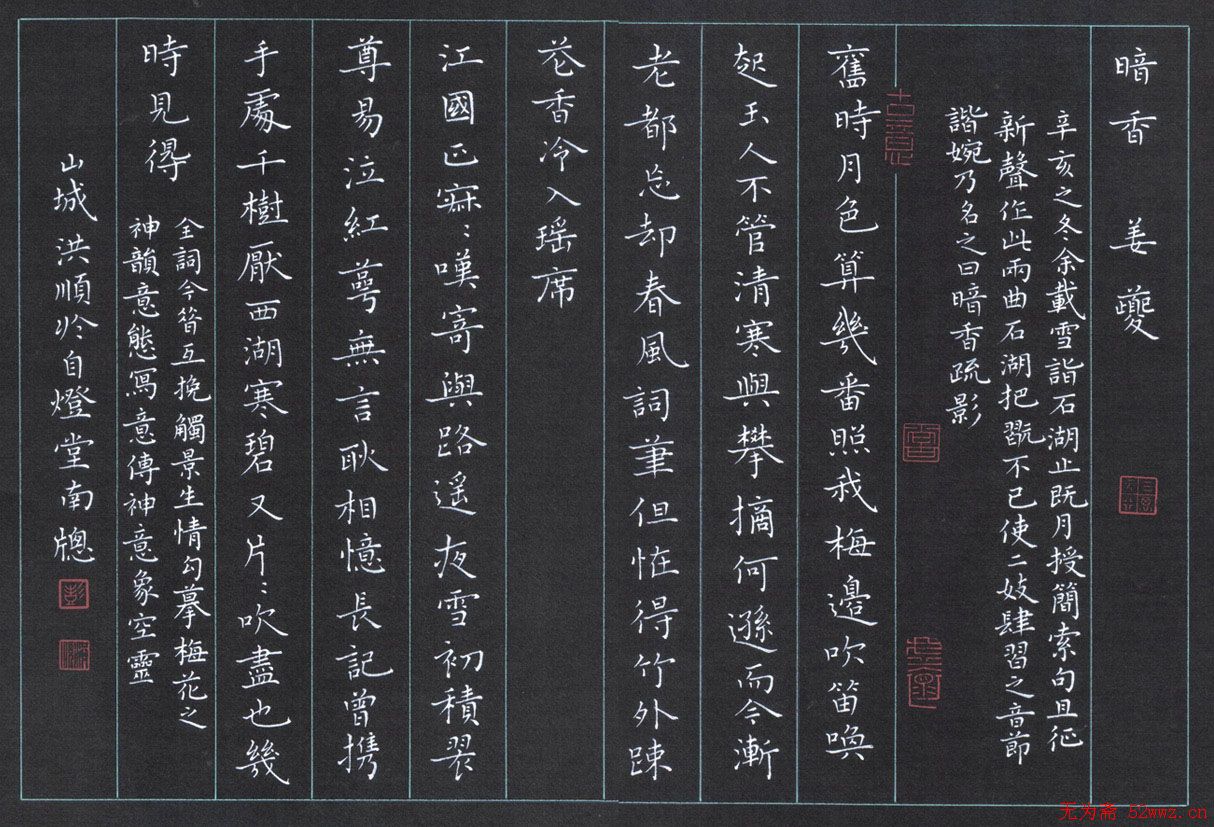 暗香 姜夔
辛亥之冬余載雪詣石湖止既月授簡索句且征
新聲作此兩曲石湖把翫不已使二妓肆習之音節
諧婉乃名之曰暗香疏影
舊時月色算幾番照我梅邊吹笛喚
起玉人不管清寒與攀摘何遜而今漸
老都忘却春風詞筆但怪得竹外疎
花香冷入瑶席
江國正寂〻嘆寄與路遥夜雪初積翠
尊易泣紅萼無言耿相憶長記曾携
手處千樹壓西湖寒碧又片〻吹盡也幾
時見得
全詞今昔互挽觸景生情勾摹梅花之
神韻意態寫意傳神意象空靈
山城洪順於自燈堂南牕
古意
无为斋 52wwz.cn